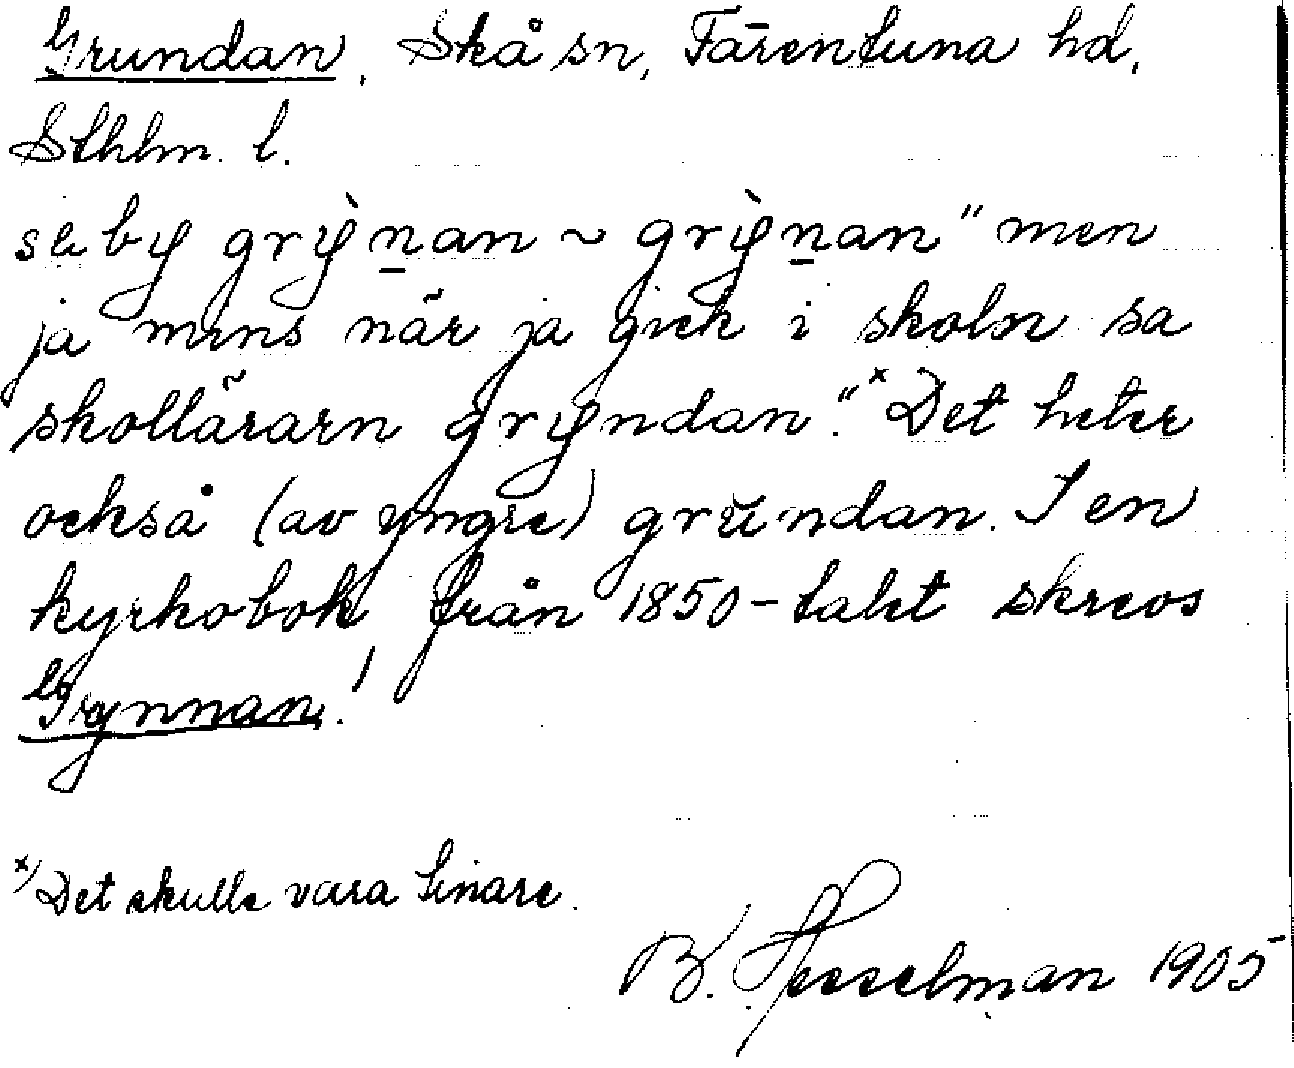 Grundan, Skå sn, Färentuna hd,
Sthlm. l.
sa by grỳnan ~ grỳnan" men
ja mins när ja gick i skoln sa
skollärarn gryndan".ˣ Det heter
också (av yngre) grundan. I en
kyrkobok från 1850-talet skrevs
Grynnan!
ˣ⁾ Det skulle vara finare.
B. Hesselman 1905